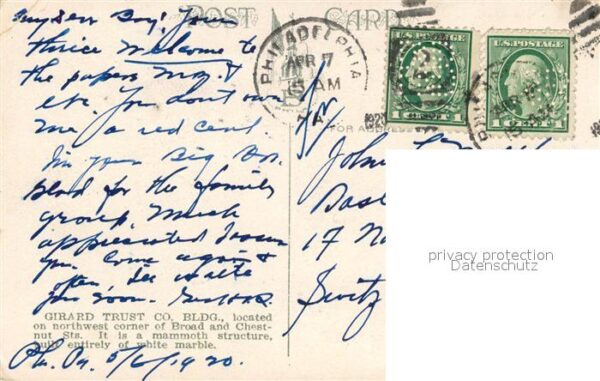 POST CARD
My Dear Boy! Your
thrice welcome to
the papers Mag. &
etc. You don't owe
me a red cent
in your Big
for the family
group. Much
appreciated
you. Come again &
often,
you soon.
GIRARD TRUST CO. BLDG., located
on northwest corner of Broad and Chest-
nut Sts. It is a mammoth structure,
built entirely of white marble.
Ph. Pa. 5/6/1920.
PHILADELPHIA
APR 17
AM
PA.
1920
FOR ADDRESS
U.S. POSTAGE
1 CENT 1
U.S. POSTAGE
1 CENT 1
John
17 No
Switz
privacy protection
Datenschutz